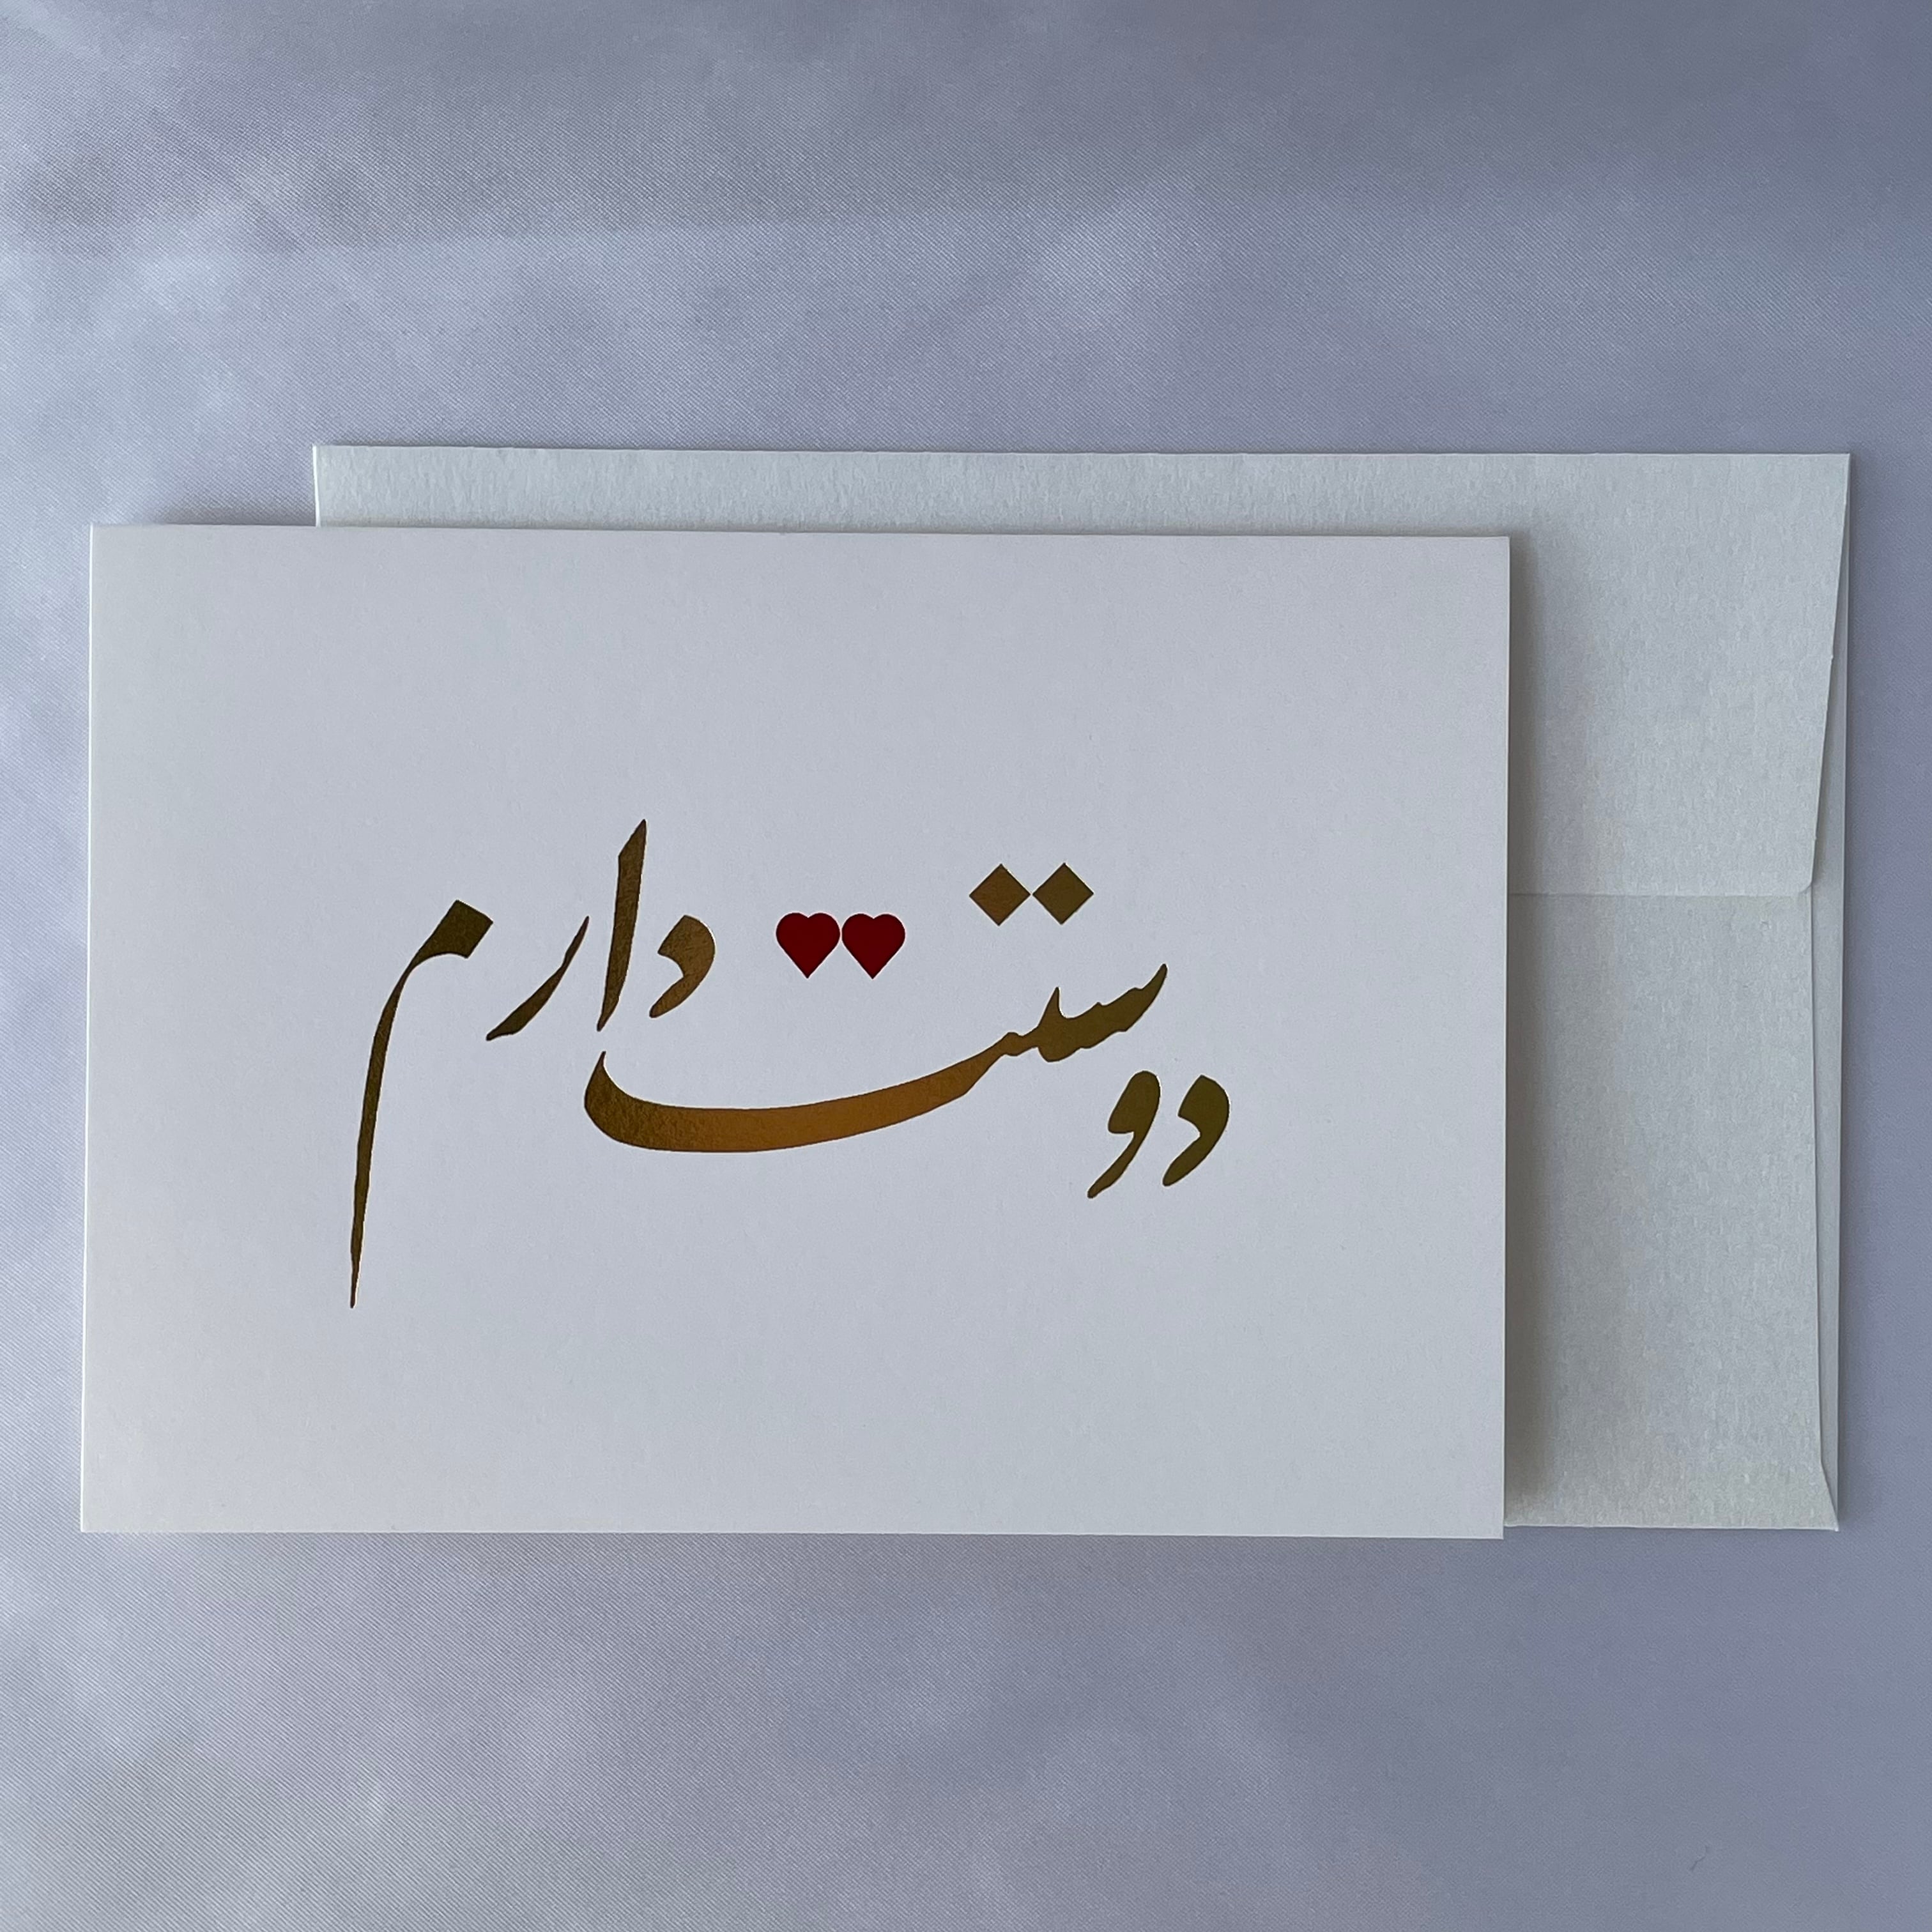 دوستت دارم